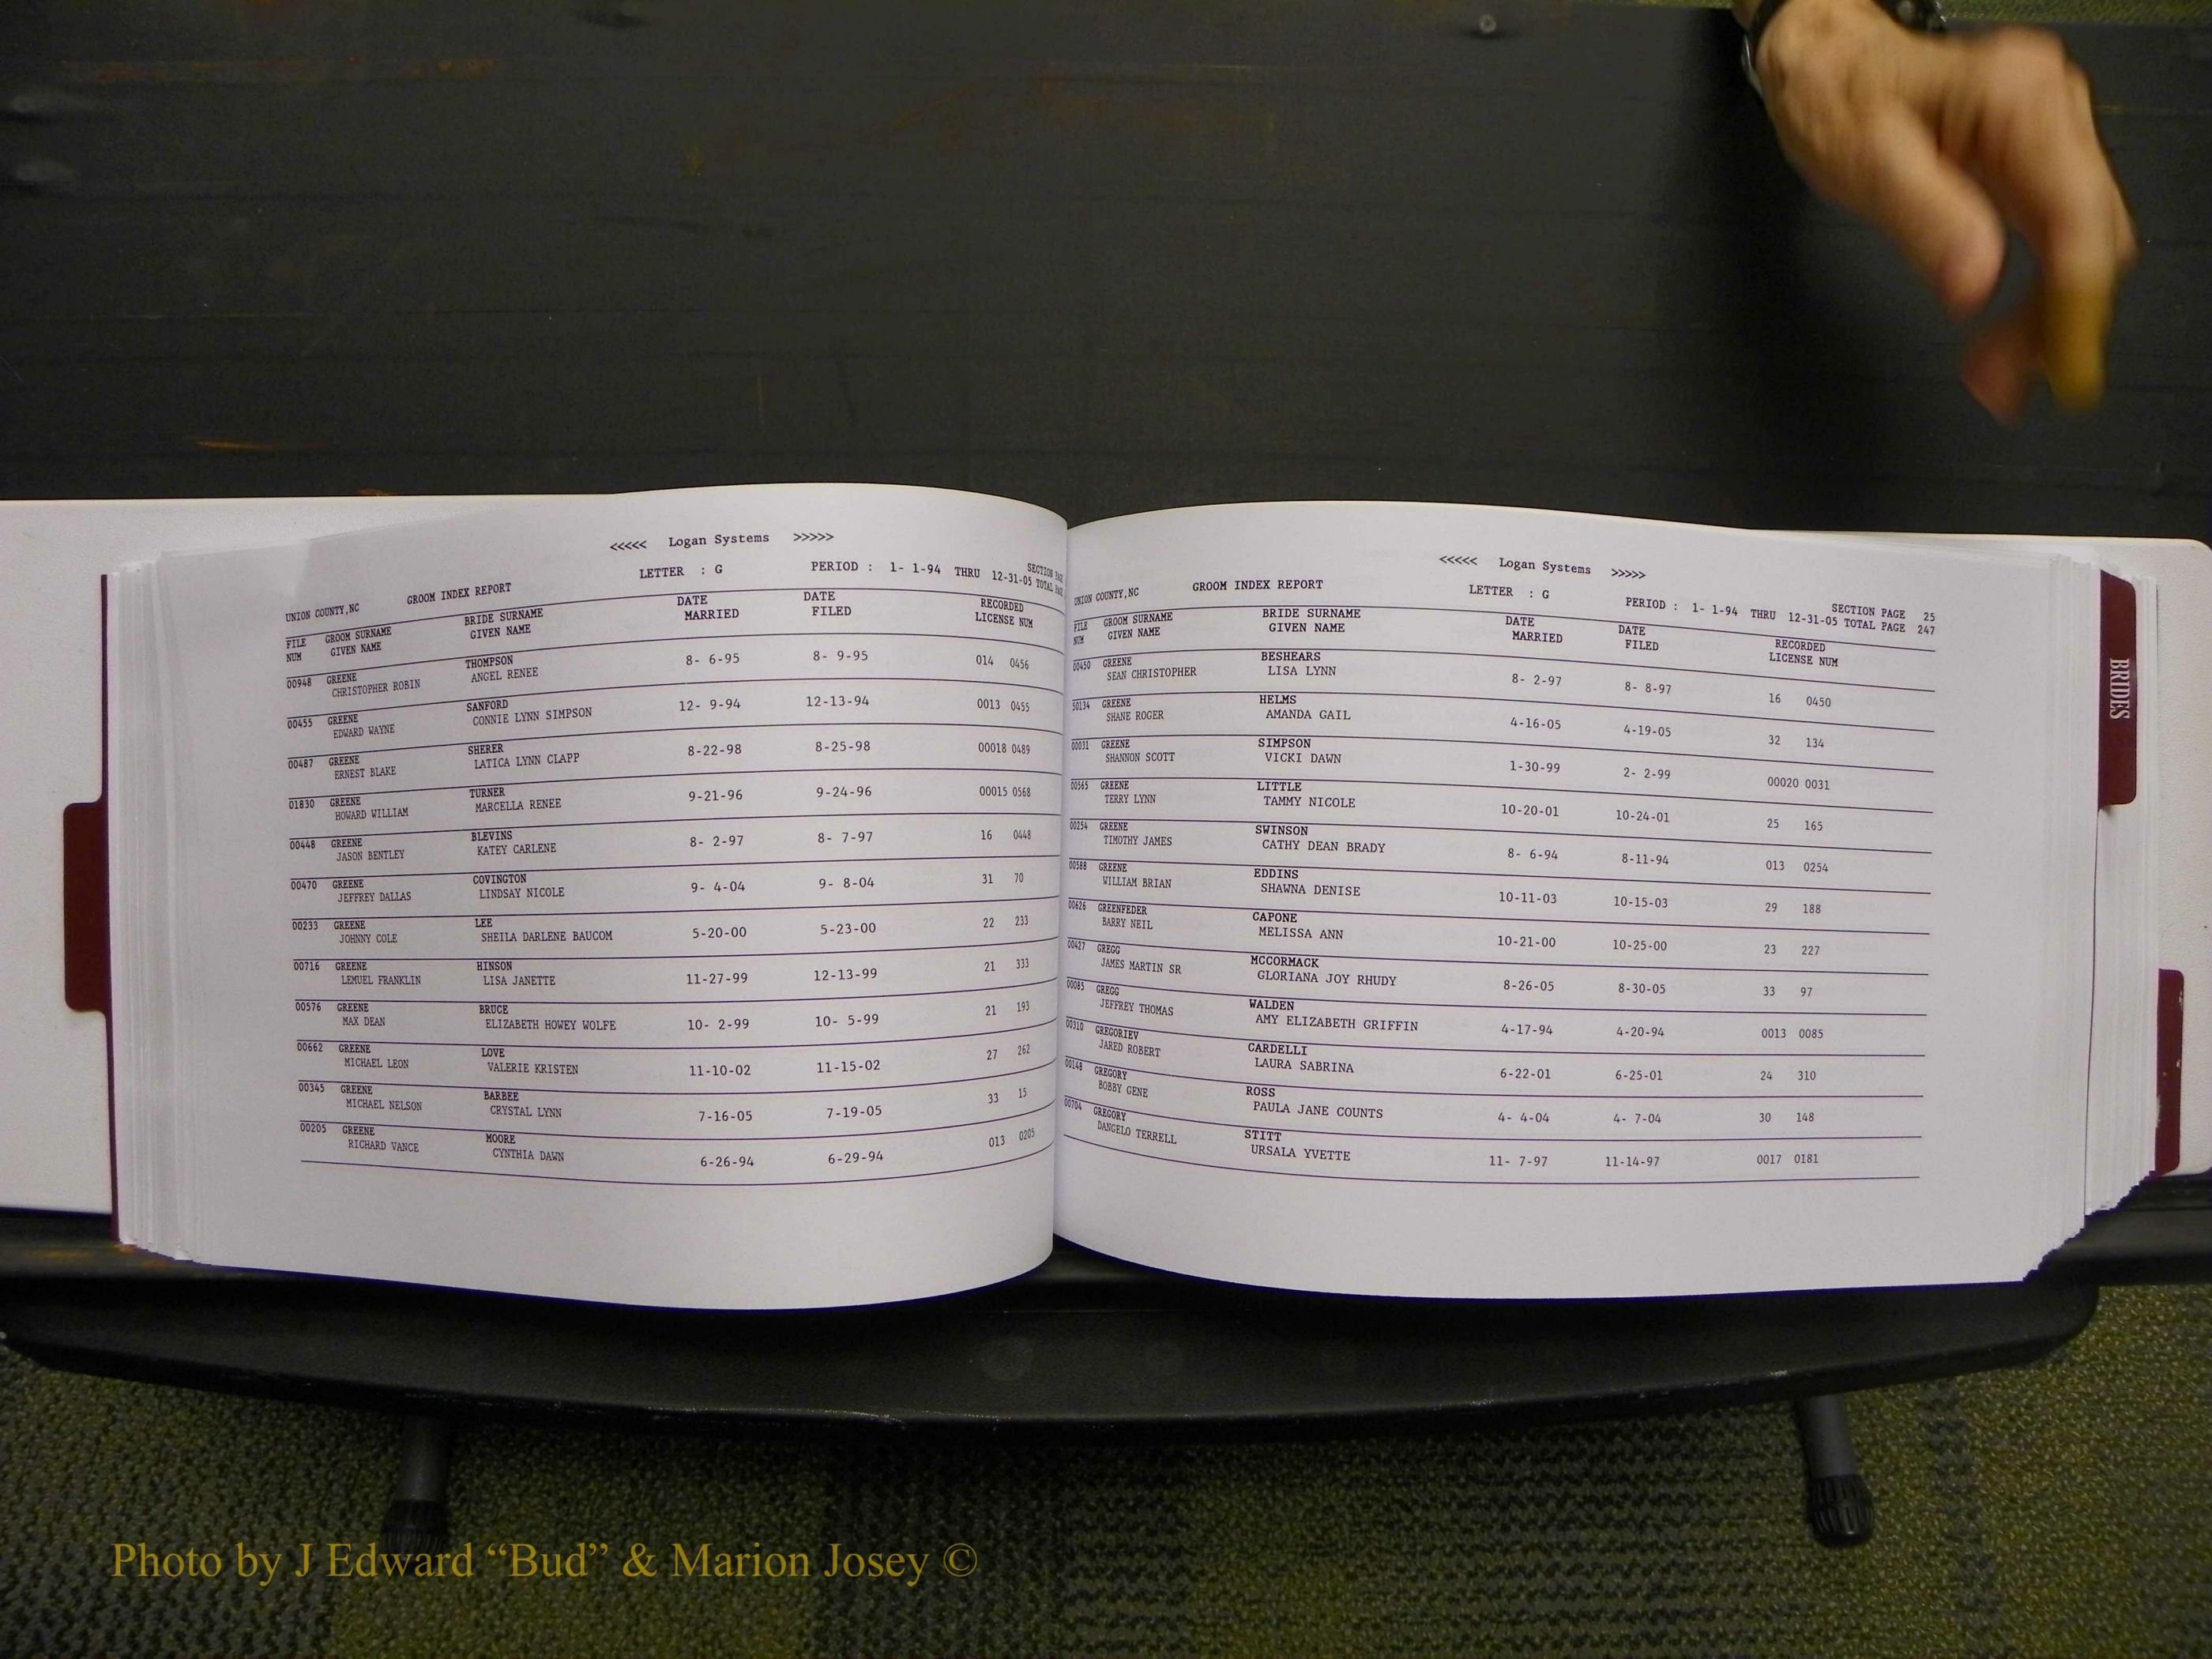 <<<<< Logan Systems >>>>>
LETTER : G PERIOD : 1- 1-94 THRU 12-31-05 SECTION TOTAL
UNION COUNTY,NC GROOM INDEX REPORT
FILE GROOM SURNAME BRIDE SURNAME DATE DATE RECORDED
NUM GIVEN NAME GIVEN NAME MARRIED FILED LICENSE NUM
00948 GREENE THOMPSON 8- 6-95 8- 9-95 014 0456
CHRISTOPHER ROBIN ANGEL RENEE
00455 GREENE SANFORD 12- 9-94 12-13-94 0013 0455
EDWARD WAYNE CONNIE LYNN SIMPSON
00487 GREENE SHERER 8-22-98 8-25-98 00018 0489
ERNEST BLAKE LATICA LYNN CLAPP
01830 GREENE TURNER 9-21-96 9-24-96 00015 0568
HOWARD WILLIAM MARCELLA RENEE
00448 GREENE BLEVINS 8- 2-97 8- 7-97 16 0448
JASON BENTLEY KATEY CARLENE
00470 GREENE COVINGTON 9- 4-04 9- 8-04 31 70
JEFFREY DALLAS LINDSAY NICOLE
00233 GREENE LEE 5-20-00 5-23-00 22 233
JOHNNY COLE SHEILA DARLENE BAUCOM
00716 GREENE HINSON 11-27-99 12-13-99 21 333
LEMUEL FRANKLIN LISA JANETTE
00576 GREENE BRUCE 10- 2-99 10- 5-99 21 193
MAX DEAN ELIZABETH HOWEY WOLFE
00662 GREENE LOVE 11-10-02 11-15-02 27 262
MICHAEL LEON VALERIE KRISTEN
00345 GREENE BARBEE 7-16-05 7-19-05 33 15
MICHAEL NELSON CRYSTAL LYNN
00205 GREENE MOORE 6-26-94 6-29-94 013 0205
RICHARD VANCE CYNTHIA DAWN
<<<<< Logan Systems >>>>>
UNION COUNTY,NC GROOM INDEX REPORT LETTER : G PERIOD : 1- 1-94 THRU 12-31-05 SECTION PAGE 25
TOTAL PAGE 247
FILE GROOM SURNAME BRIDE SURNAME DATE DATE RECORDED
NUM GIVEN NAME GIVEN NAME MARRIED FILED LICENSE NUM
00450 GREENE BESHEARS 8- 2-97 8- 8-97 16 0450
SEAN CHRISTOPHER LISA LYNN
50134 GREENE HELMS 4-16-05 4-19-05 32 134
SHANE ROGER AMANDA GAIL
00031 GREENE SIMPSON 1-30-99 2- 2-99 00020 0031
SHANNON SCOTT VICKI DAWN
00565 GREENE LITTLE 10-20-01 10-24-01 25 165
TERRY LYNN TAMMY NICOLE
00254 GREENE SWINSON 8- 6-94 8-11-94 013 0254
TIMOTHY JAMES CATHY DEAN BRADY
00588 GREENE EDDINS 10-11-03 10-15-03 29 188
WILLIAM BRIAN SHAWNA DENISE
00626 GREENFEDER CAPONE 10-21-00 10-25-00 23 227
BARRY NEIL MELISSA ANN
00427 GREGG MCCORMACK 8-26-05 8-30-05 33 97
JAMES MARTIN SR GLORIANA JOY RHUDY
00085 GREGG WALDEN 4-17-94 4-20-94 0013 0085
JEFFREY THOMAS AMY ELIZABETH GRIFFIN
00310 GREGORIEV CARDELLI 6-22-01 6-25-01 24 310
JARED ROBERT LAURA SABRINA
00148 GREGORY ROSS 4- 4-04 4- 7-04 30 148
BOBBY GENE PAULA JANE COUNTS
00704 GREGORY STITT 11- 7-97 11-14-97 0017 0181
DANGELO TERRELL URSALA YVETTE
BRIDES
Photo by J Edward “Bud” & Marion Josey ©